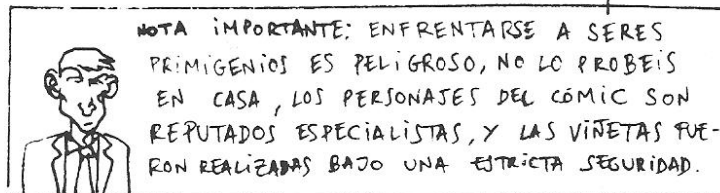 NOTA iMPORTANTE: ENFRENTARSE A SERES
PRiMiGENiOS ES PELiGROSO, NO LO PROBEiS
EN CASA, LOS PERSONAJES DEL CÓMIC SON
REPUTADOS ESPECiALiSTAS, Y LAS ViÑETAS FUE-
RON REALiZADAS BAJO UNA ESTRICTA SEGURiDAD.